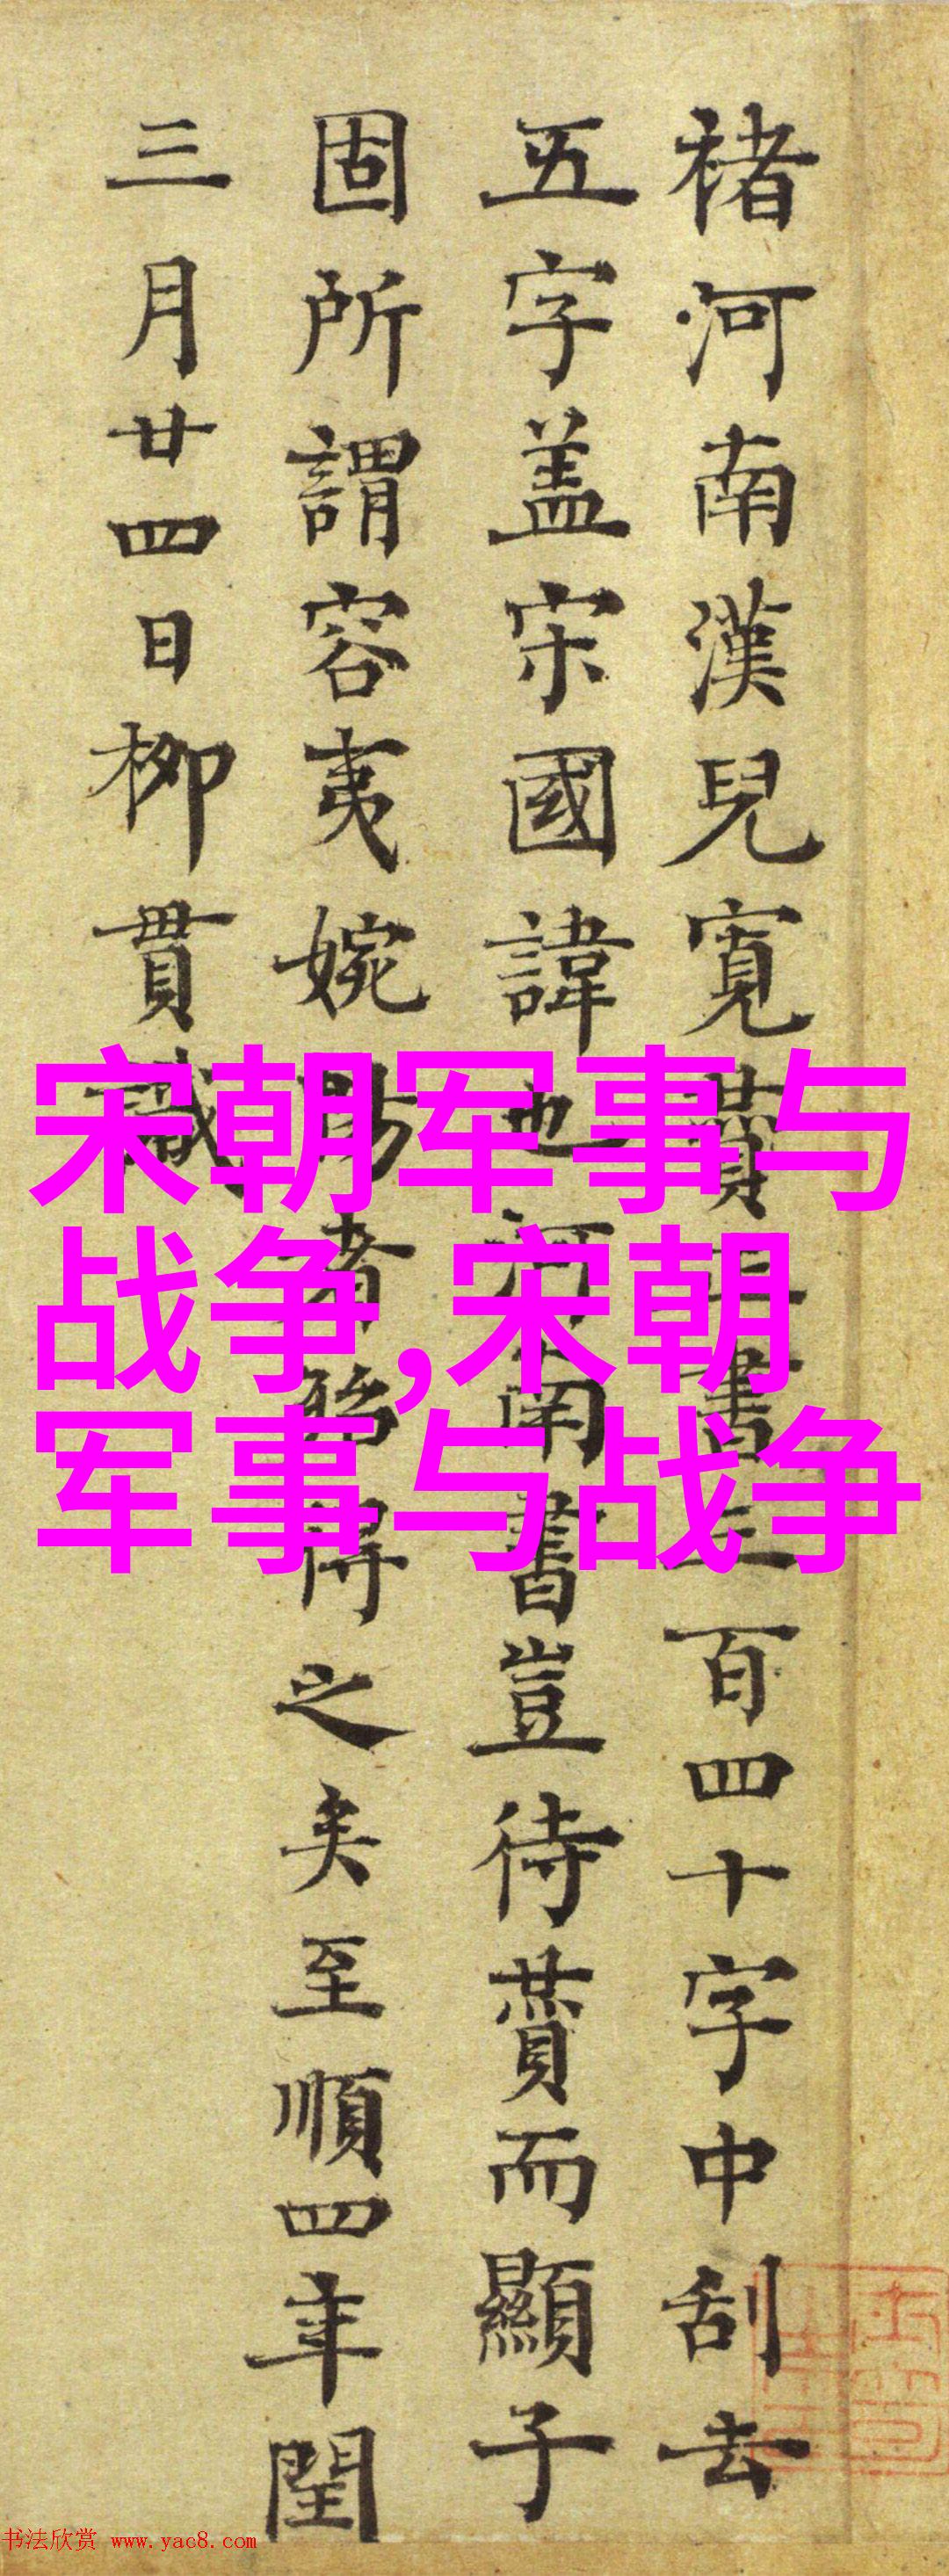 褚河南漢兒寬賛一書三百四十字中刮去
五字盖宋國諱也河南書豈待賛而顯子
固所謂容夷婉暢者殆得之矣至順四年閏
三月廿四日柳貫識
宋朝军事与
战争,宋朝
军事与战争
书法欣赏 www.yac8.com